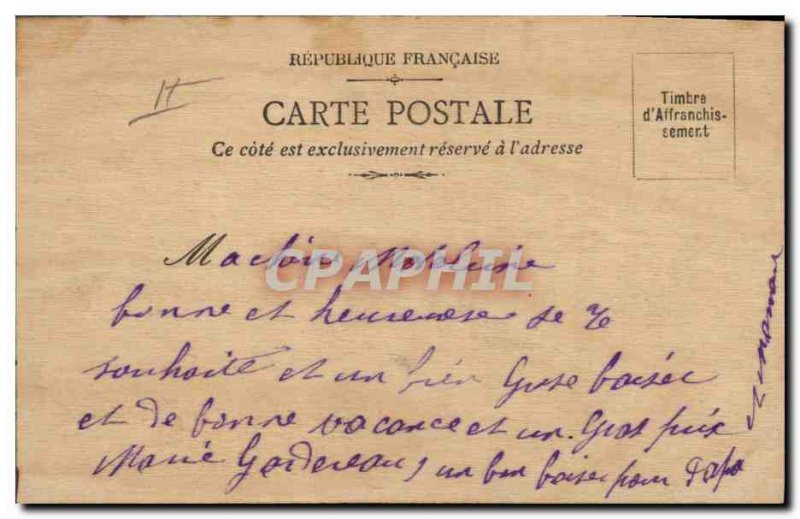 RÉPUBLIQUE FRANÇAISE
CARTE POSTALE
Ce côté est exclusivement réservé à l'adresse
Timbre
d'Affranchis-
sement
CPAPHIL
Ma
bonne et heureuse je te
souhaite et un bien Grose baiser
et de bonne vacance et un Gros
Marie un bon baiser pour papa
et maman